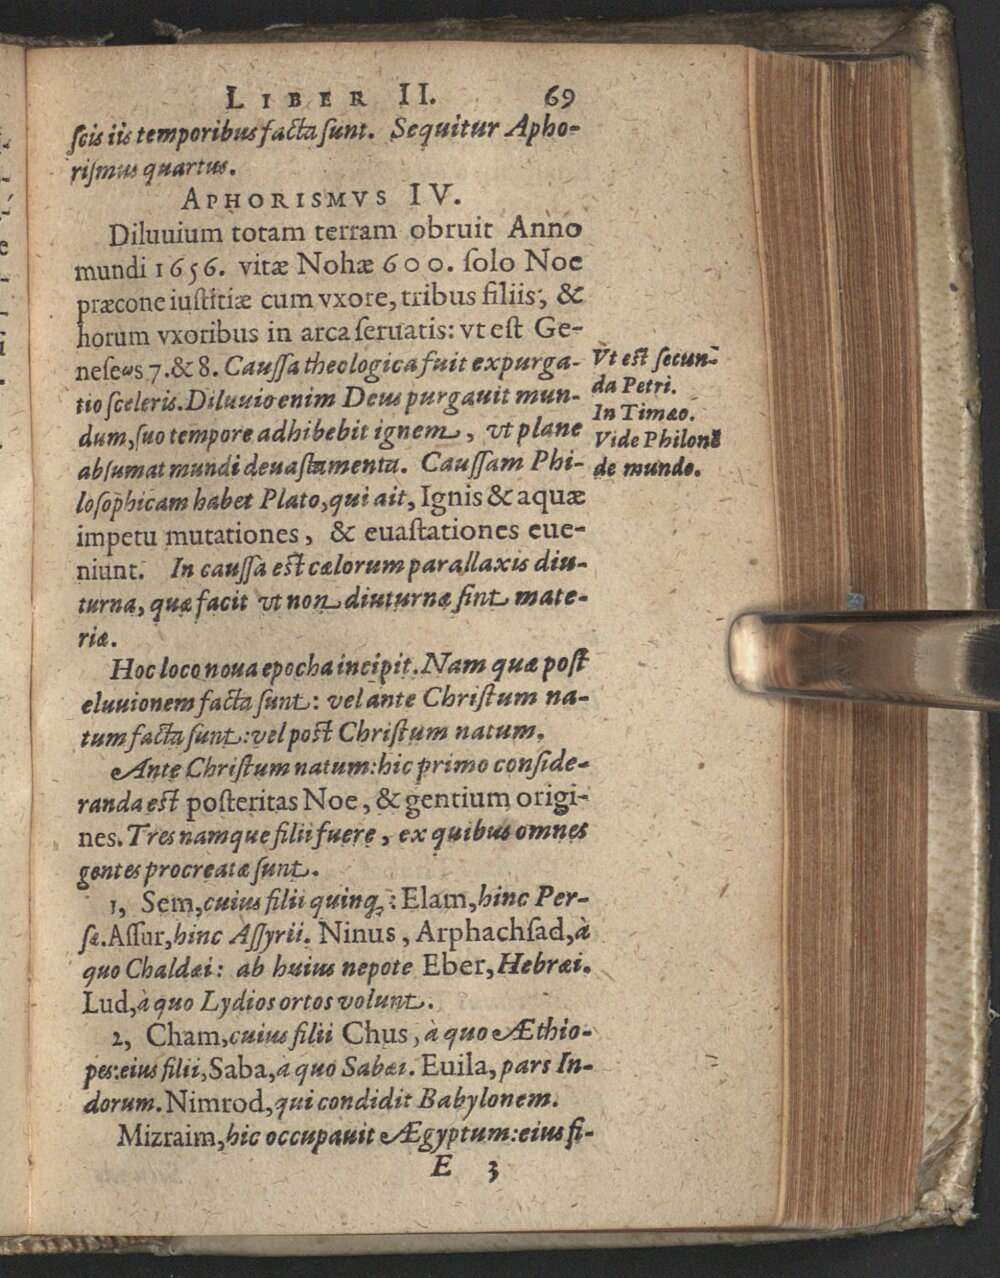 LIBER II. 69
ſcis iis temporibus facta ſunt. Sequitur Apho-
riſmus quartus.
APHORISMVS IV.
Diluuium totam terram obruit Anno
mundi 1656. vitæ Nohæ 600. ſolo Noe
præcone iuſtitiæ cum vxore, tribus filiis, &
horum vxoribus in arca ſeruatis: vt eſt Ge-
neſeωs 7. & 8. Cauſſa theologica fuit expurga-
tio ſceleris. Diluuio enim Deus purgauit mun-
dum, ſuo tempore adhibebit ignem, vt plane
abſumat mundi deuaſtamenta. Cauſſam Phi-
loſophicam habet Plato, qui ait, Ignis & aquæ
impetu mutationes, & euaſtationes eue-
niunt. In cauſſa eſt cælorum parallaxis diu-
turna, quæ facit vt non diuturnæ ſint mate-
riæ.
Vt eſt ſecun-
da Petri.
In Timæo.
Vide Philonē
de mundo.
Hoc loco noua epocha incipit. Nam quæ poſt
eluuionem facta ſunt: vel ante Chriſtum na-
tum facta ſunt: vel poſt Chriſtum natum.
Ante Chriſtum natum: hic primo conſide-
randa eſt poſteritas Noe, & gentium origi-
nes. Tres namque filii fuere, ex quibus omnes
gentes procreatæ ſunt.
1, Sem, cuius filii quinq; : Elam, hinc Per-
ſæ. Aſſur, hinc Aſſyrii. Ninus, Arphachſad, à
quo Chaldæi: ab huius nepote Eber, Hebræi.
Lud, à quo Lydios ortos volunt.
2, Cham, cuius filii Chus, à quo Æthio-
pes: eius filii, Saba, a quo Sabæi. Euila, pars In-
dorum. Nimrod, qui condidit Babylonem.
Mizraim, hic occupauit Ægyptum: eius fi-
E 3